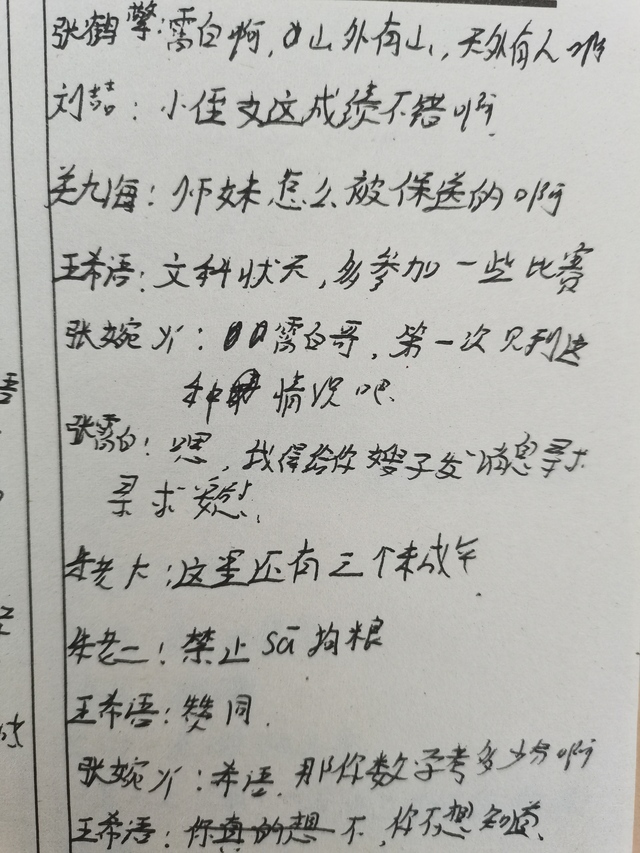 张鹤擎:霄白啊,山外有山,天外有人啊
刘喆:小侄女这成绩不错啊
关九海:师妹怎么被保送的啊
王希语:文科状元,多参加一些比赛
张婉丫:霄白哥,第一次见到这
种情况吧.
张霄白:嗯,我得给你嫂子发消息寻求
寻求安慰.
朱老大:这里还有三个未成年
朱老二:禁止sā狗粮
王希语:赞同.
张婉丫:希语,那你数学考多少分啊
王希语:你真的想不,你不想知道.